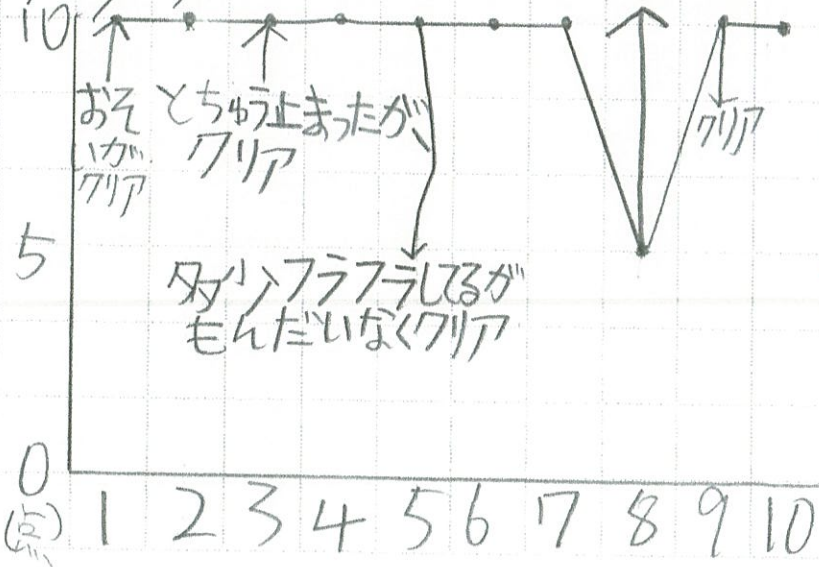 10
おそ
いが
クリア
とちゅう止まったが、
クリア
クリア
5
多少フラフラしてるが
もんだいなくクリア
0
(点) 1 2 3 4 5 6 7 8 9 10